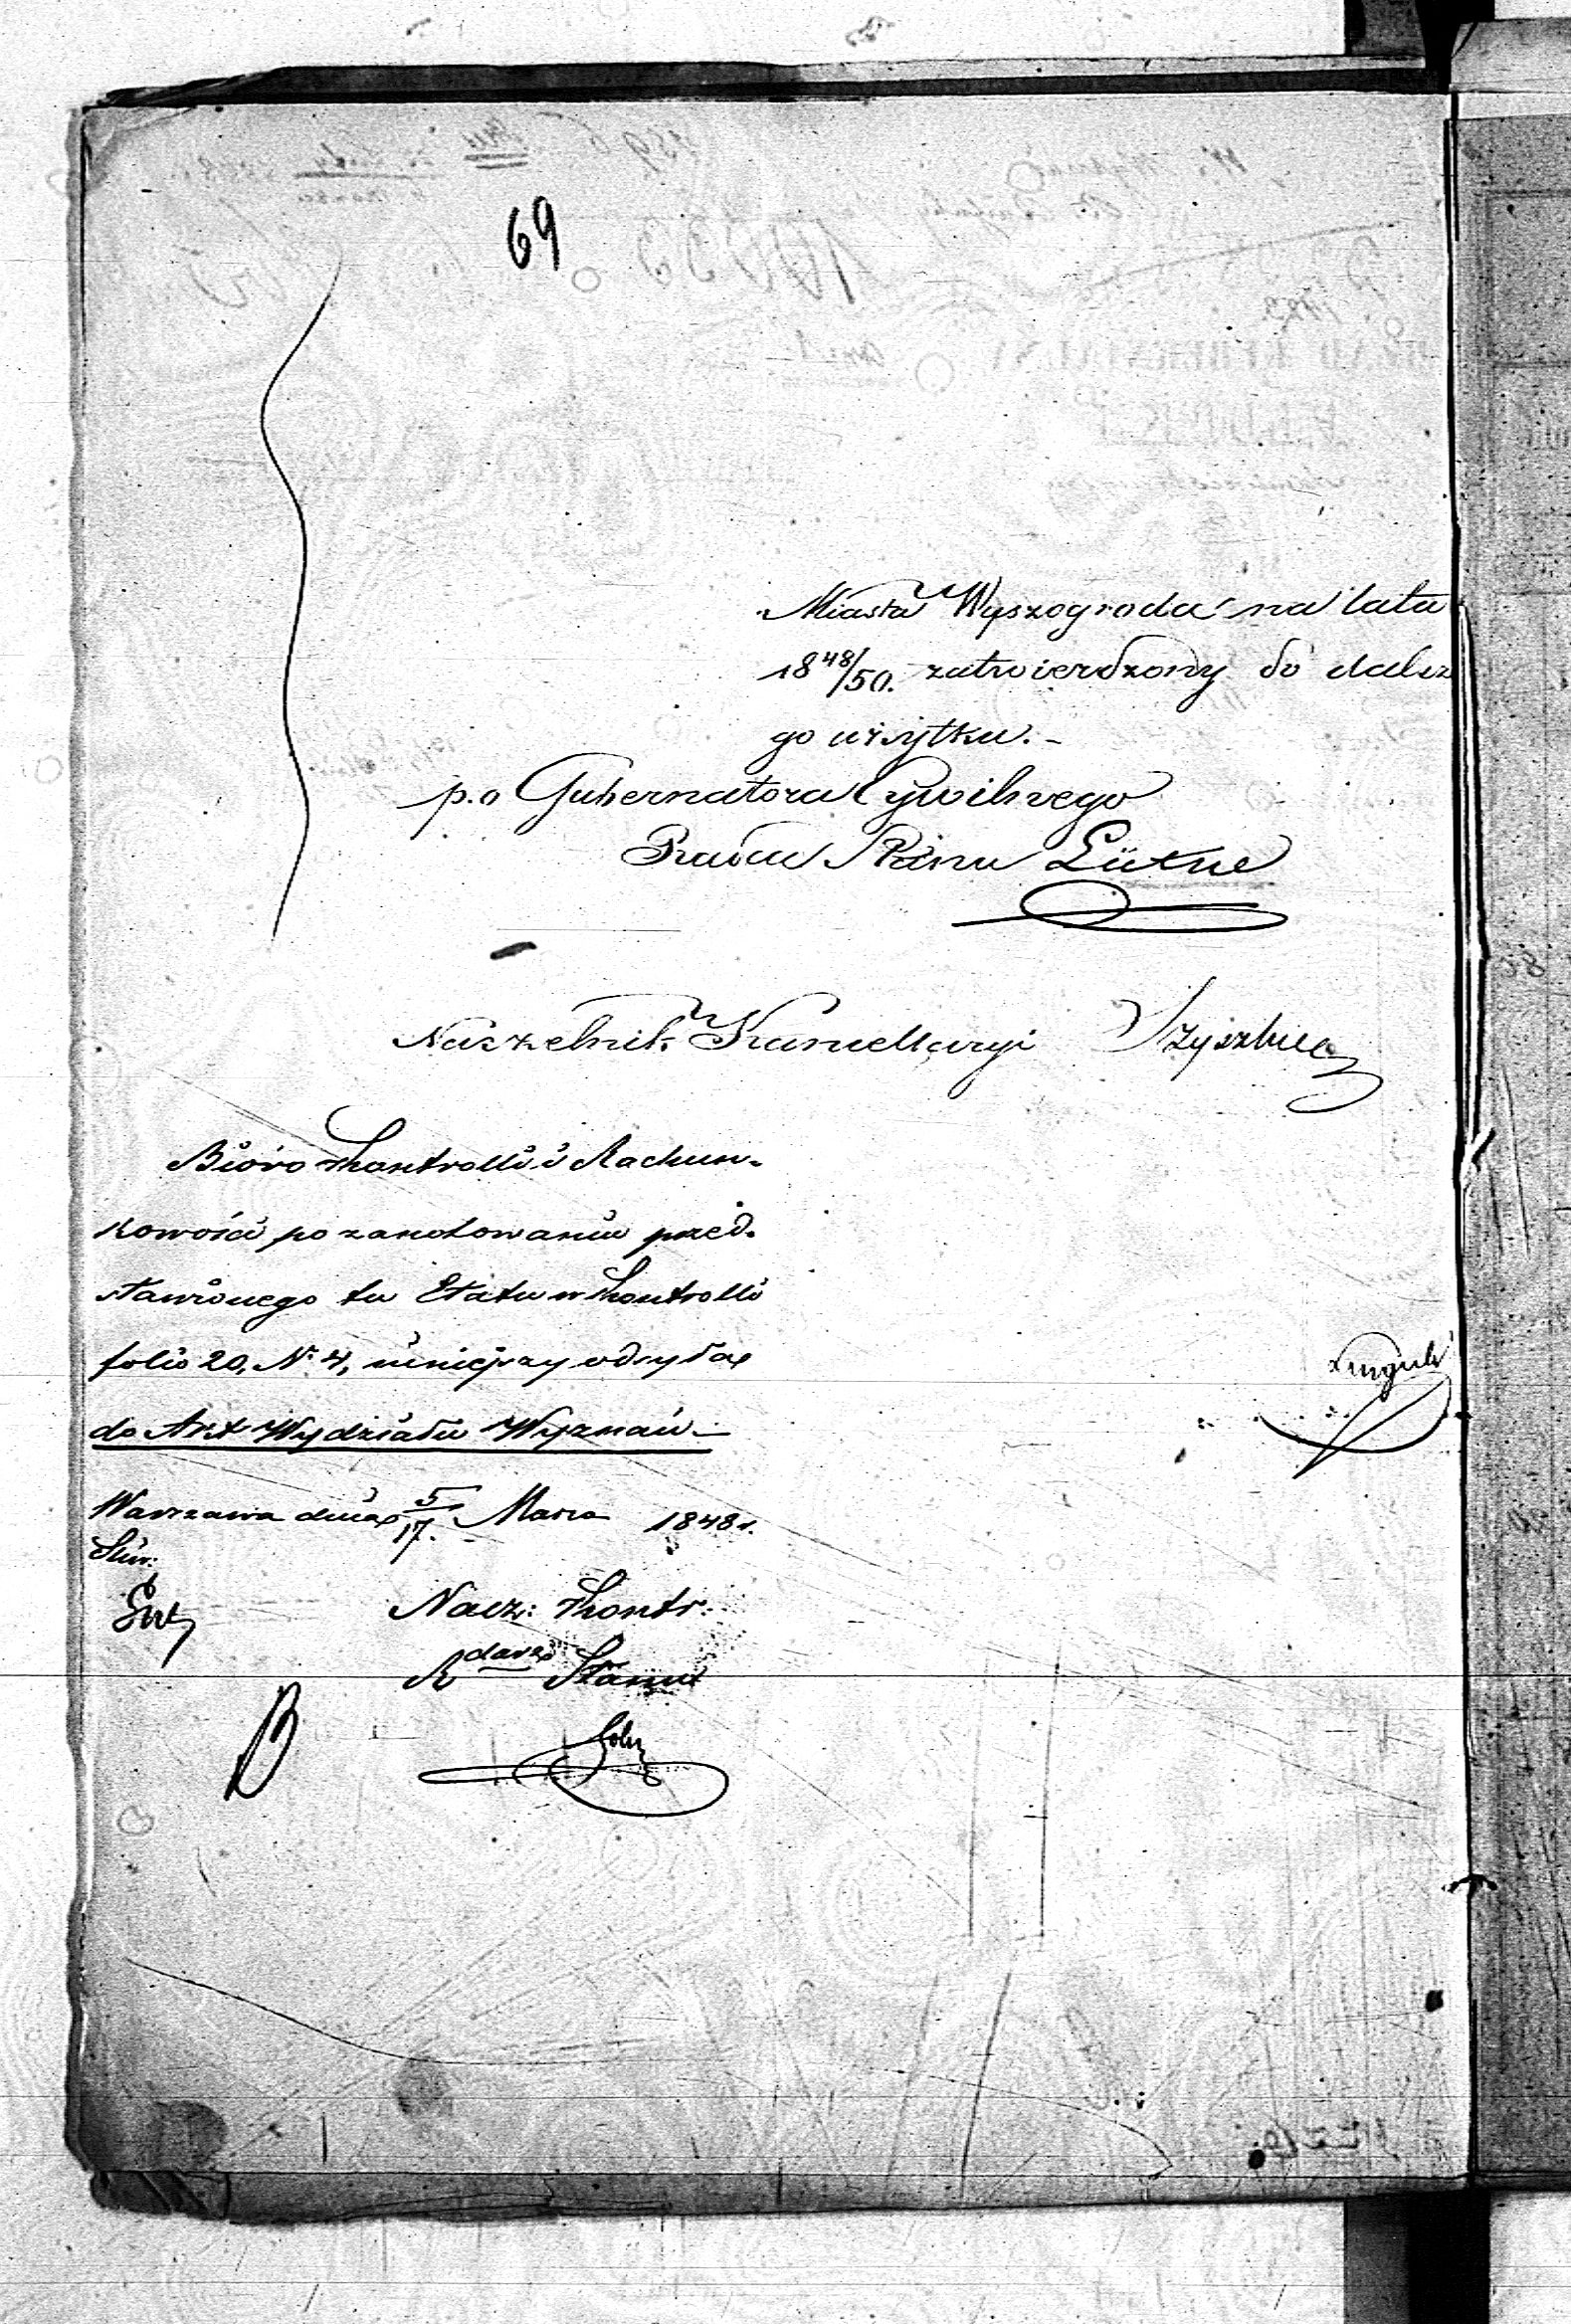 69
Miasta Wyszogroda na lata
18 48/50. zatwierdzony do dalsz
go użytku. -
p.o Gubernatora Cywilnego
Radca Stanu
Naczelnik Kancellaryi
Bióro Kontrolli i Rachun-
kowości po zanotowaniu przed-
stawionego tu Etatu w Kontrolli
folio 20, N. 4, niniejszy odsyła
do Akt Wydziału Wyznań -
Warszawa dnia 5/17. Marca 1848 r.
Nacz: Kontr.
R Stanu